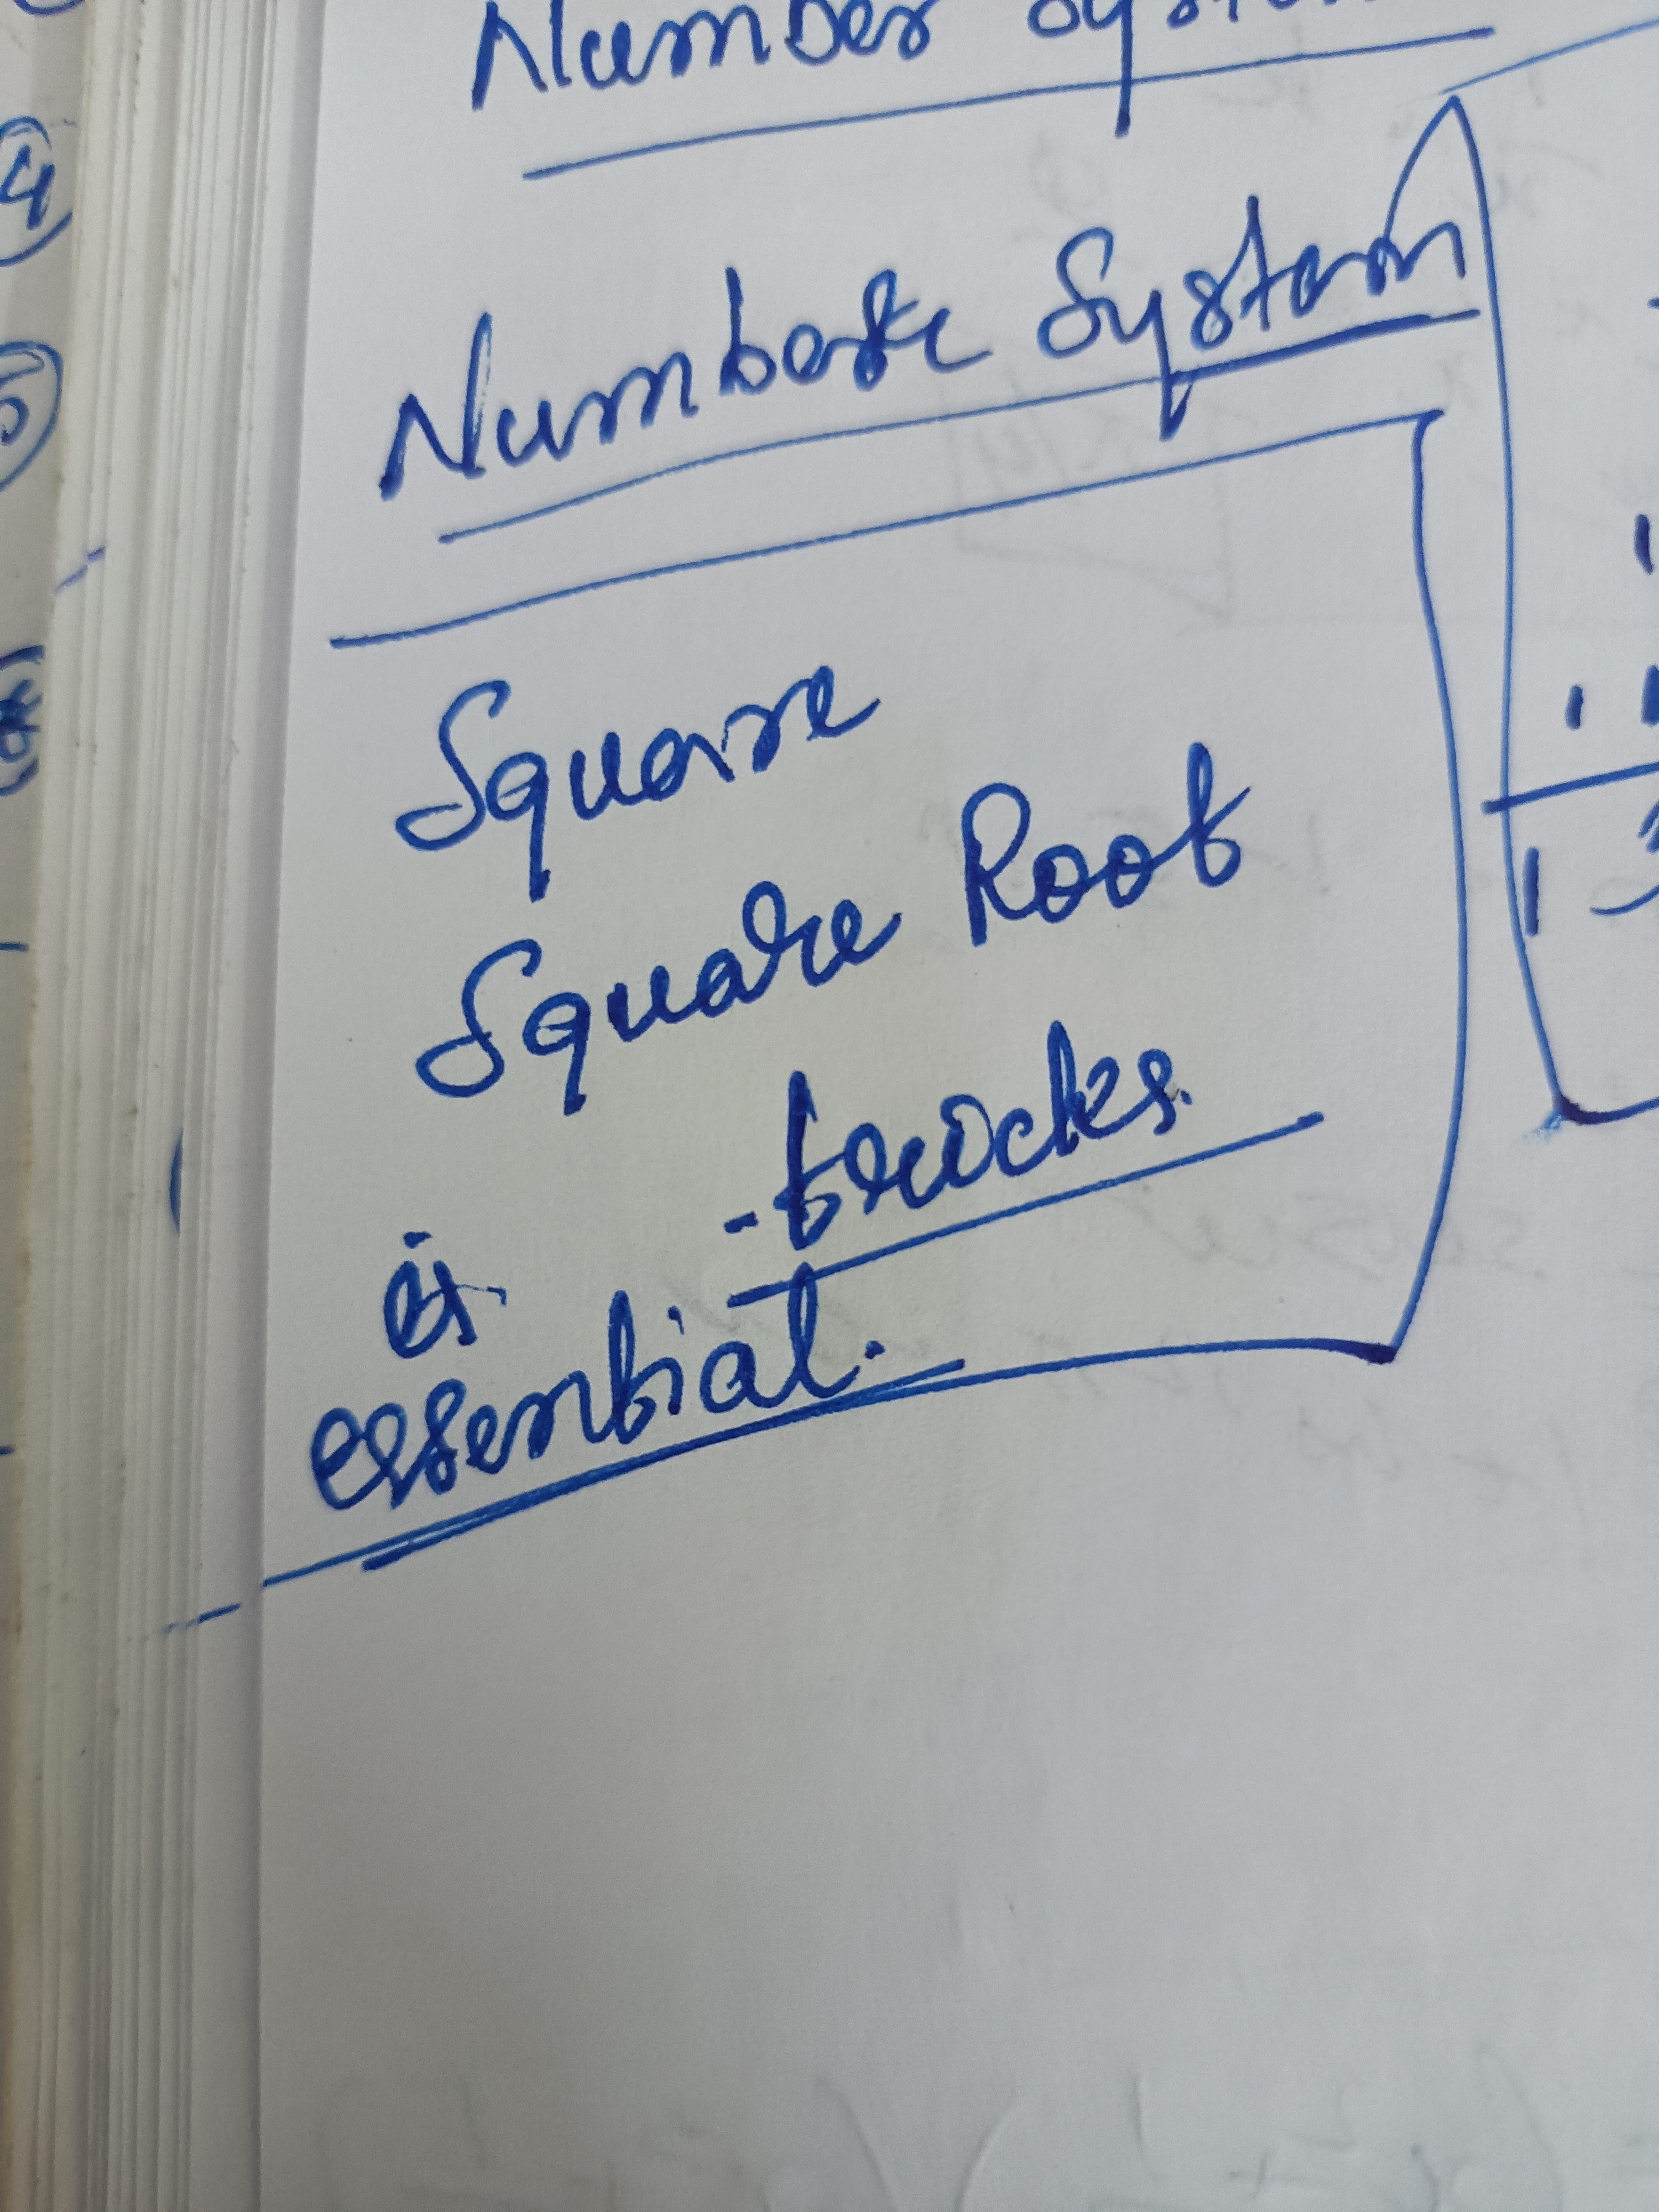 Number System
Number System
Square
Square Root
- tricks.
is
essential.
4
1
1 1
1 3